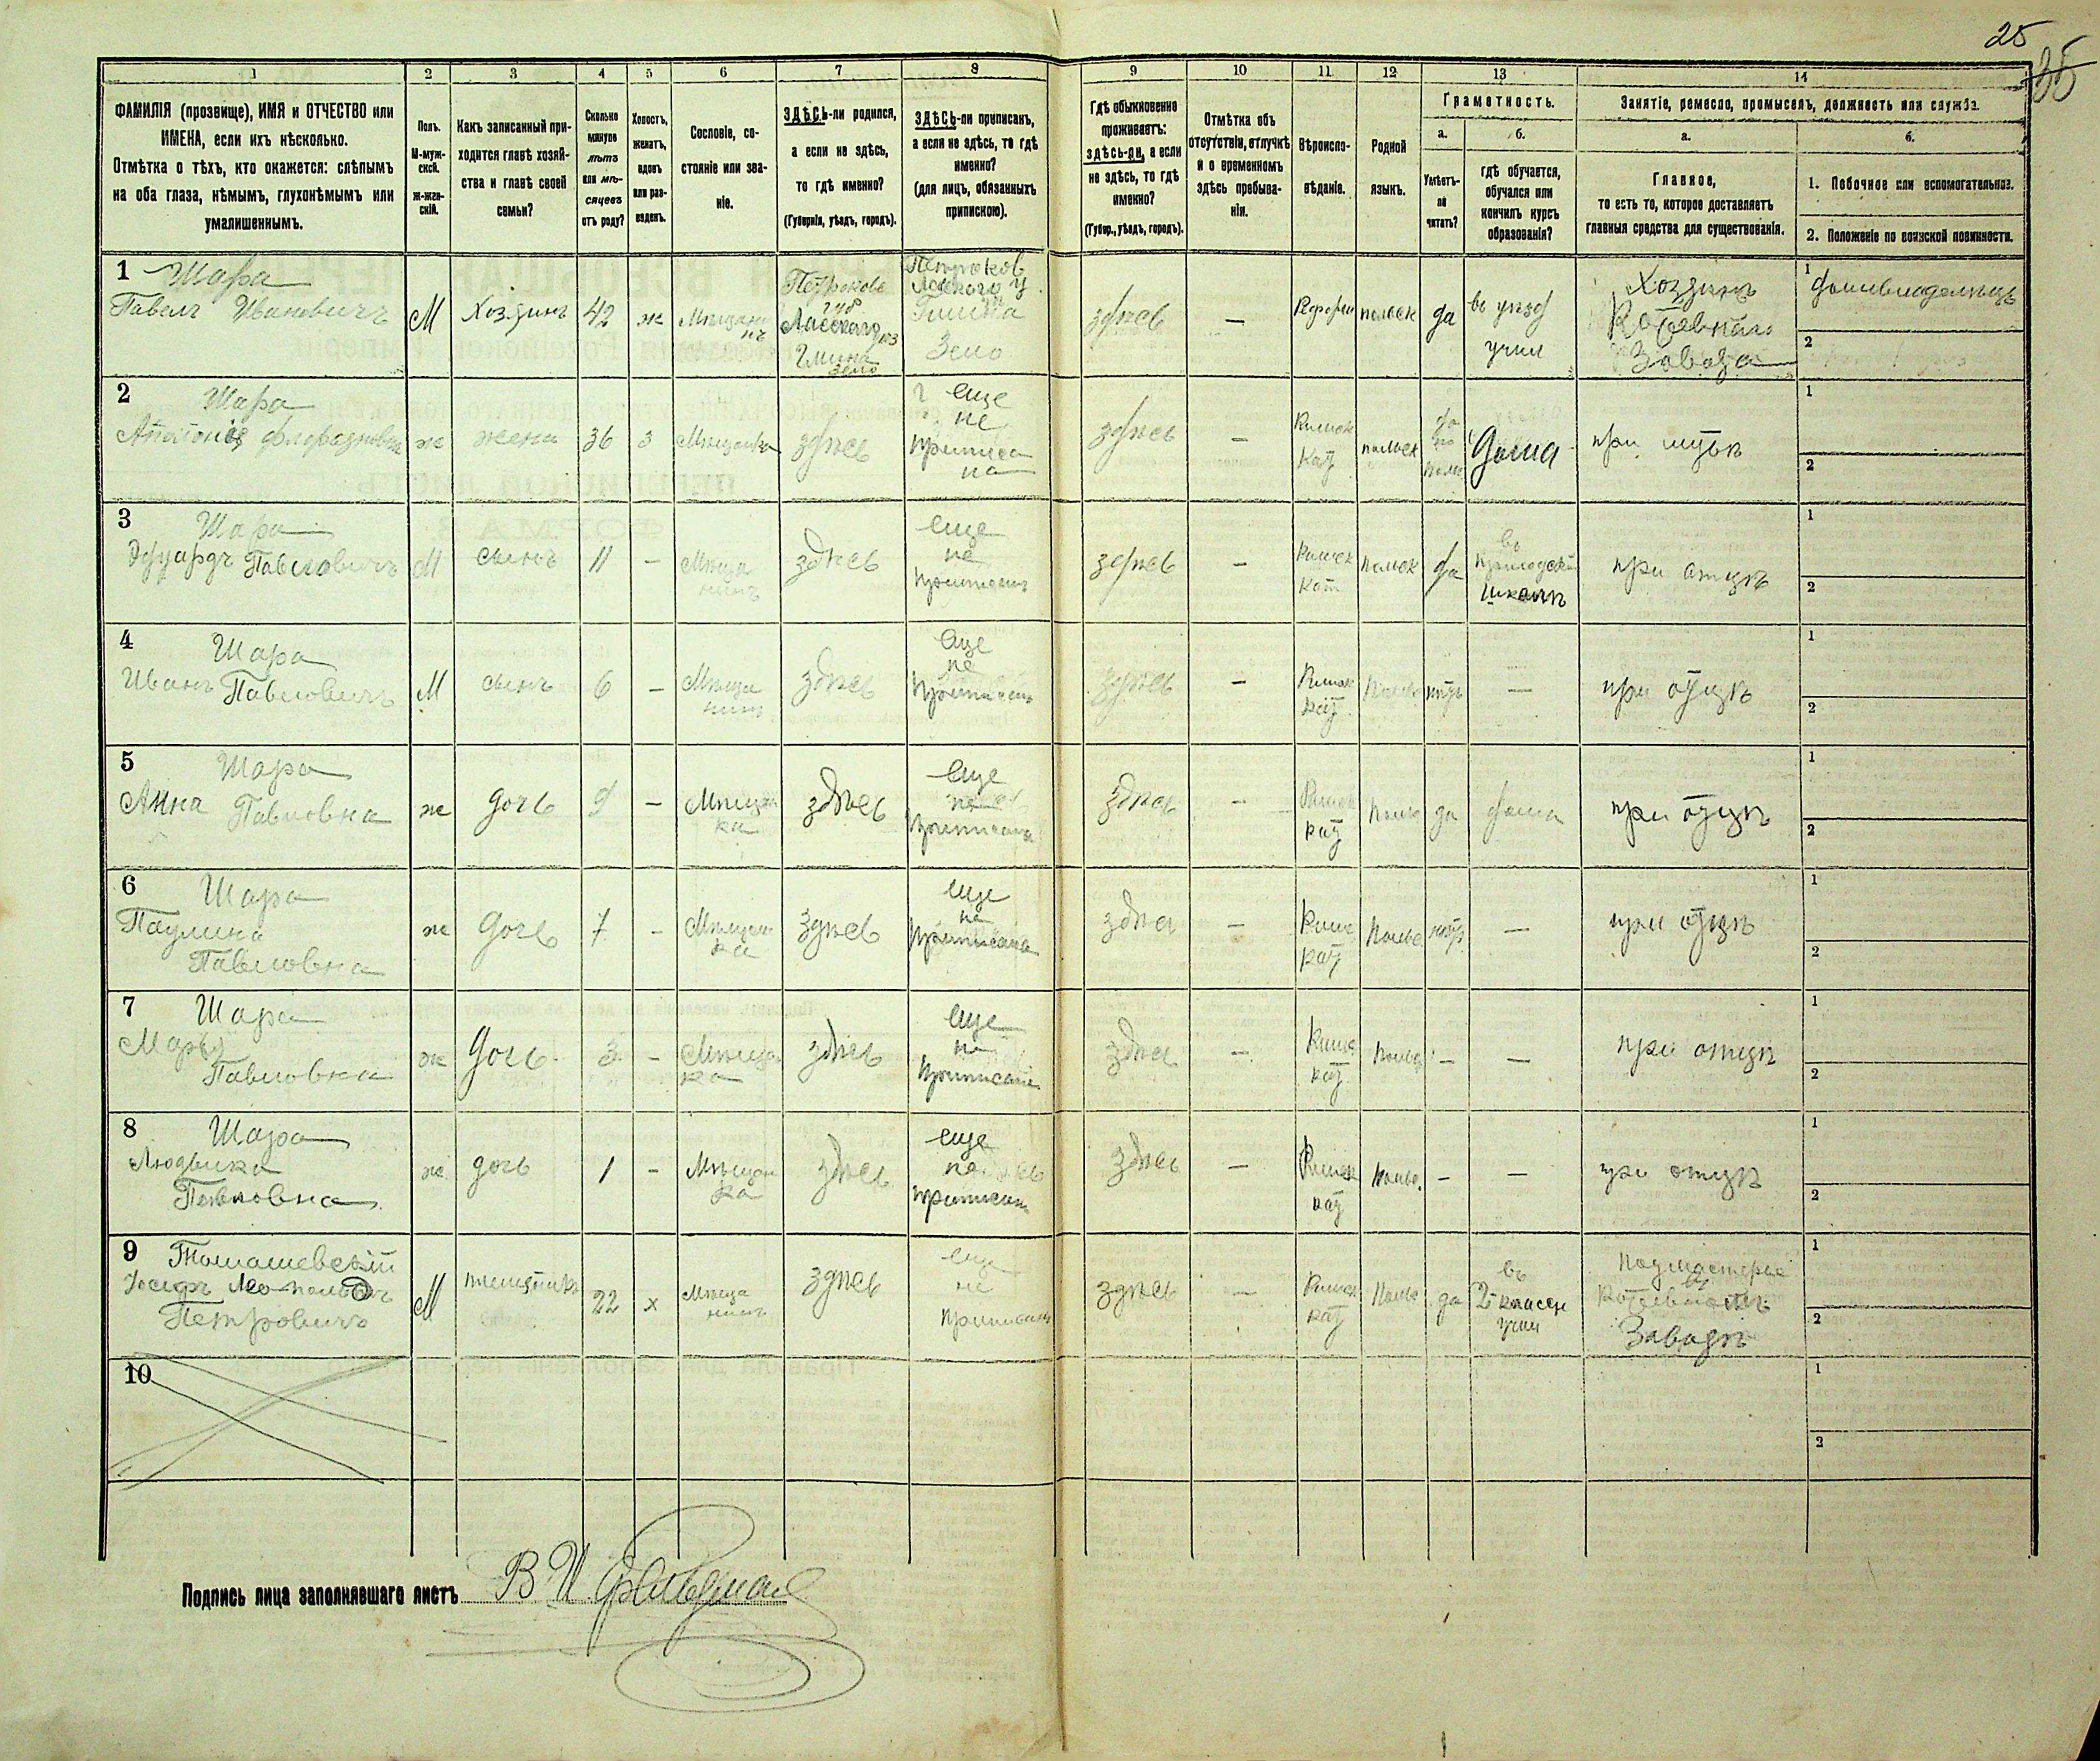 25
35
1 2 3 4 5 6 7 8 9 10 11 12 13 14
ФАМИЛІЯ (прозвище), ИМЯ и ОТЧЕСТВО или
ИМЕНА, если ихъ нѣсколько.
Отмѣтка о тѣхъ, кто окажется: слѣпымъ
на оба глаза, нѣмымъ, глухонѣмымъ или
умалишеннымъ.
Полъ.
М-муж-
ской.
Ж-жен-
скій.
Какъ записанный при-
ходится главѣ хозяй-
ства и главѣ своей
семьи?
Сколько
минуло
лѣтъ
или мѣ-
сяцевъ
отъ роду?
Холостъ,
женатъ,
вдовъ
или раз-
веденъ.
Сословіе, со-
стояніе или зва-
ніе.
ЗДѢСЬ-ли родился,
а если не здѣсь,
то гдѣ именно?
(Губернія, уѣздъ, городъ).
ЗДѢСЬ-ли приписанъ,
а если не здѣсь, то гдѣ
именно?
(для лицъ, обязанныхъ
припискою).
Гдѣ обыкновенно
проживаетъ:
здѣсь-ли, а если
не здѣсь, то гдѣ
именно?
(Губер., уѣздъ, городъ).
Отмѣтка объ
отсутствіи, отлучкѣ
и о временномъ
здѣсь пребыва-
ніи.
Вѣроиспо-
вѣданіе.
Родной
языкъ.
Грамотность.
а.
Умѣетъ-
ли
читать?
б.
гдѣ обучается,
обучался или
кончилъ курсъ
образованія?
Занятіе, ремесло, промыселъ, должность или служба.
а.
Главное,
то есть то, которое доставляетъ
главныя средства для существованія.
б.
1. Побочное или вспомогательное.
2. Положеніе по воинской повинности.
1 Шара
Павелъ Ивановичъ
М
Хозяинъ
42
ж
Мѣщани
нъ
Петроков
губ
Ласскаго уѣз
Гмина
Зело
Петроков
Ласкаго у
Гмина
Зело
здѣсь
—
Реформ
польск
да
въ уѣзд
учил
Хозяинъ
Котельнаго
Завода
1
домовладелецъ
2
2 Шара
Аполонія
ж
жена
36
з
Мѣщанка
здѣсь
еще
не
приписа
на
здѣсь
—
Римск
кат
польск
да
по
польс
дома
при мужѣ
1
2
3 Шара
Эдуардъ Павловичъ
М
сынъ
11
—
Мѣща
нинъ
здѣсь
еще
не
приписанъ
здѣсь
—
Римск
кат
польск
да
въ
приходской
школѣ
при отцѣ
1
2
4 Шара
Иванъ Павловичъ
М
сынъ
6
—
Мѣща
нинъ
здѣсь
еще
не
приписанъ
здѣсь
—
Римск
кат
польс
нѣтъ
—
при отцѣ
1
2
5 Шара
Анна Павловна
ж
дочь
9
—
Мѣщан
ка
здѣсь
еще
не
приписана
здѣсь
—
Римск
кат
польс
да
дома
при отцѣ
1
2
6 Шара
Паулина
Павловна
ж
дочь
7
—
Мѣщан
ка
здѣсь
еще
не
приписана
здѣсь
—
Римс
кат
польс
нѣтъ
—
при отцѣ
1
2
7 Шара
Марья
Павловна
ж
дочь
3
—
Мѣщан
ка
здѣсь
еще
не
приписана
здѣсь
—
Римс
кат
польс
—
—
при отцѣ
1
2
8 Шара
Людвика
Павловна
ж
дочь
1
—
Мѣщан
ка
здѣсь
еще
не
приписана
здѣсь
—
Римск
кат
польс.
—
—
при отцѣ
1
2
9 Томашевскій
Іосифъ Леопольдъ
Петровичъ
М
22
х
Мѣща
нинъ
здѣсь
еще
не
приписанъ
здѣсь
—
Римск
кат
польс
да
въ
2 класн
учил
подмастерье
въ
котельномъ
Заводѣ
1
2
10
1
2
Подпись лица заполнявшаго листъ